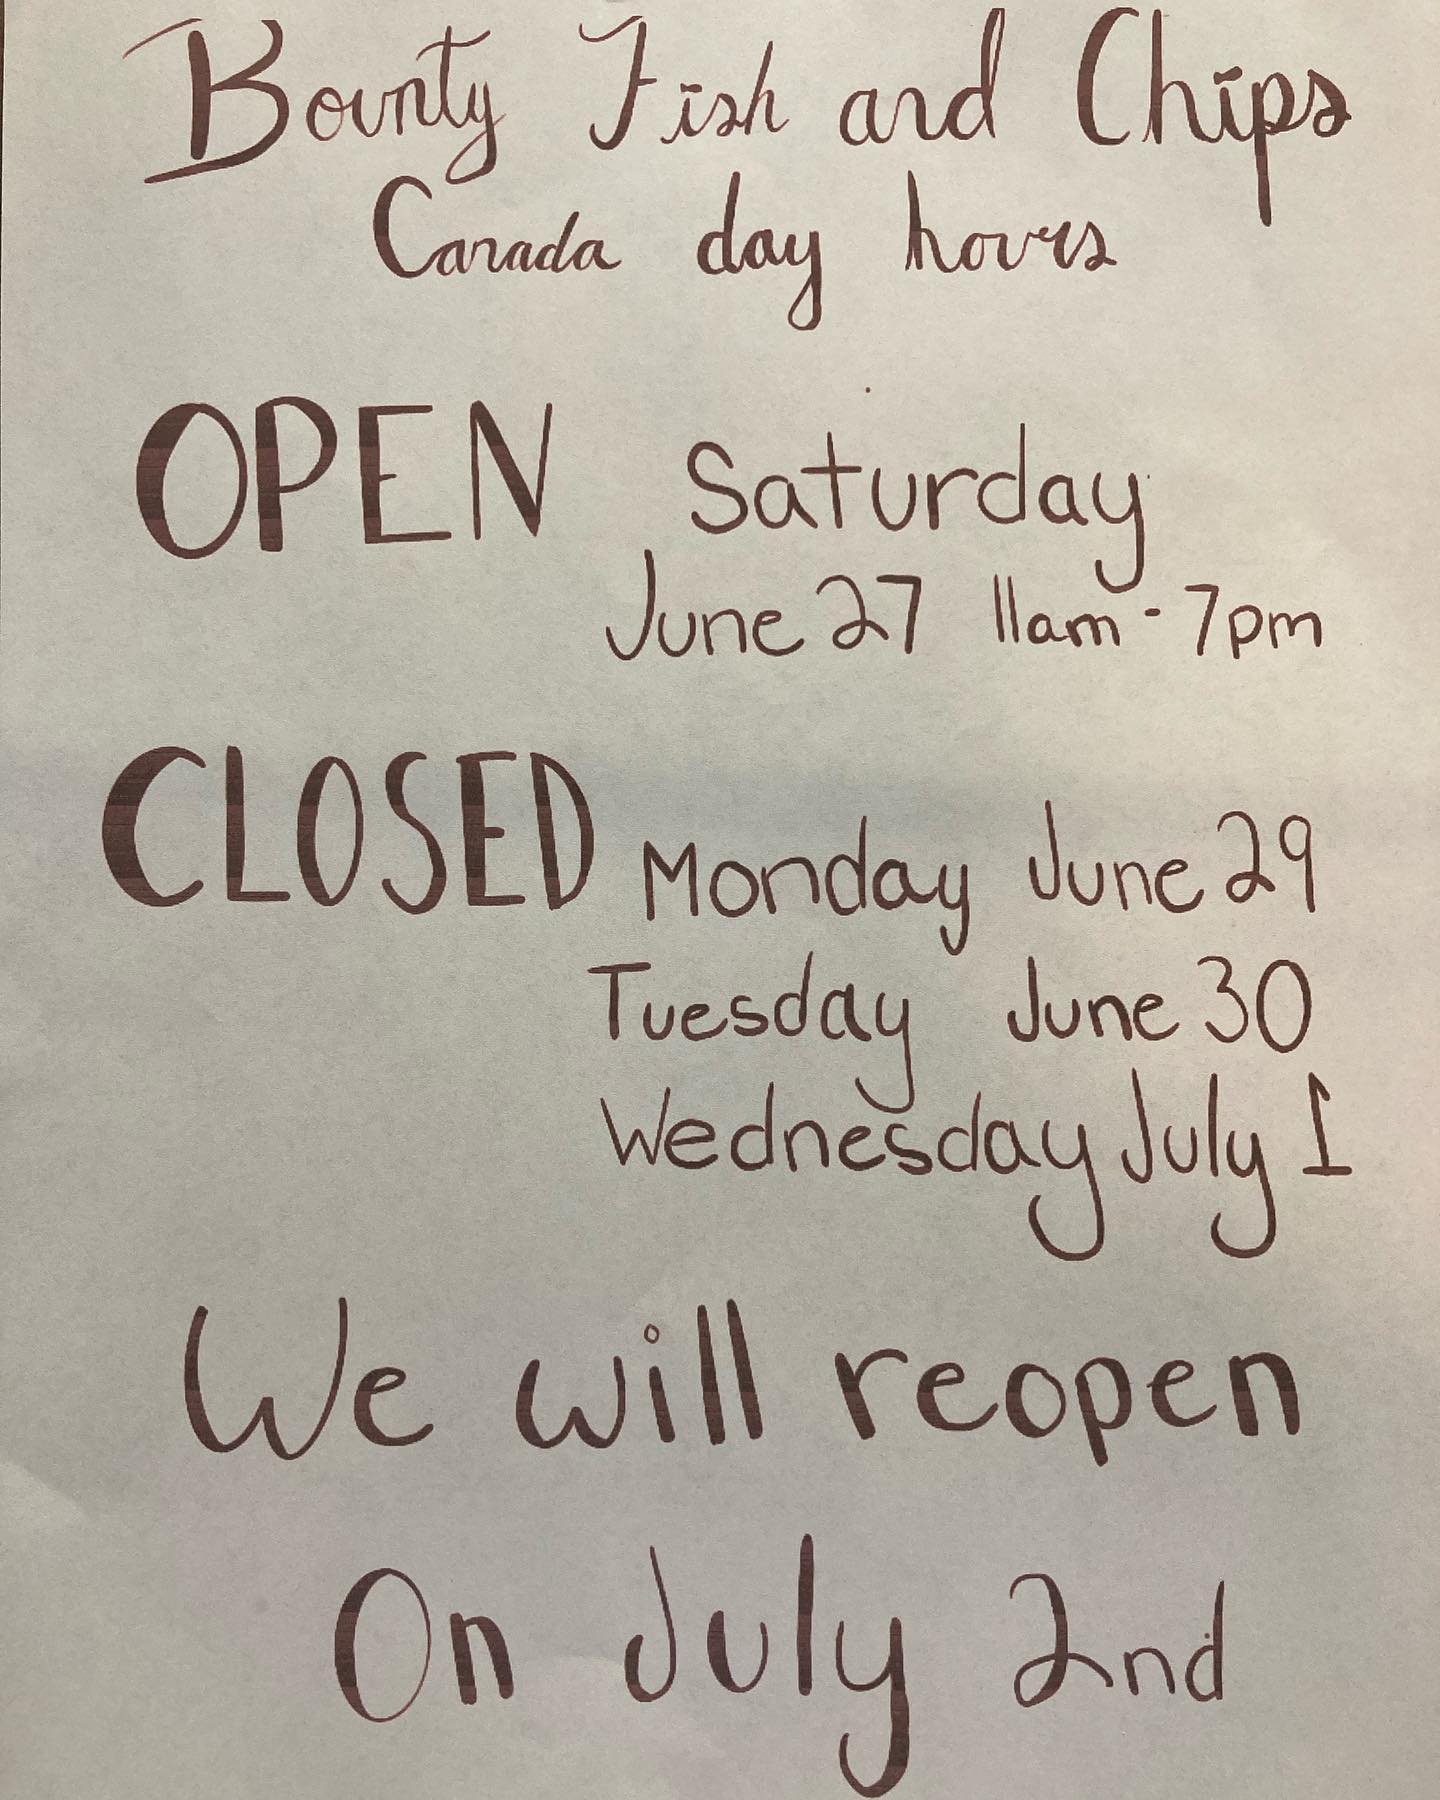 Bounty Fish and Chips
Canada day hours
OPEN Saturday
June 27 11am - 7pm
CLOSED Monday June 29
Tuesday June 30
Wednesday July 1
We will reopen
On July 2nd